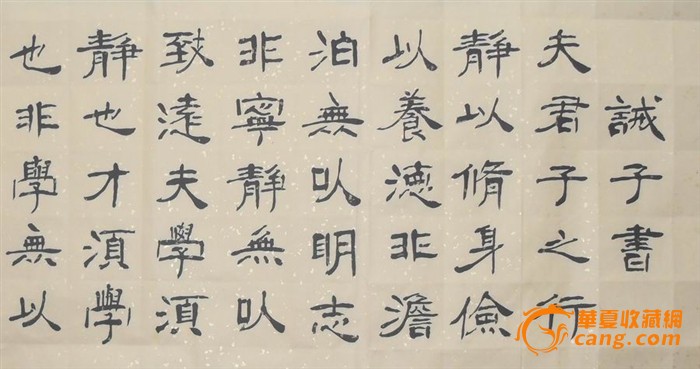 誡子書
夫君子之行
靜以脩身儉
以養德非澹
泊無以明志
非寧靜無以
致遠夫學須
靜也才須學
也非學無以
華夏收藏網
cang.com